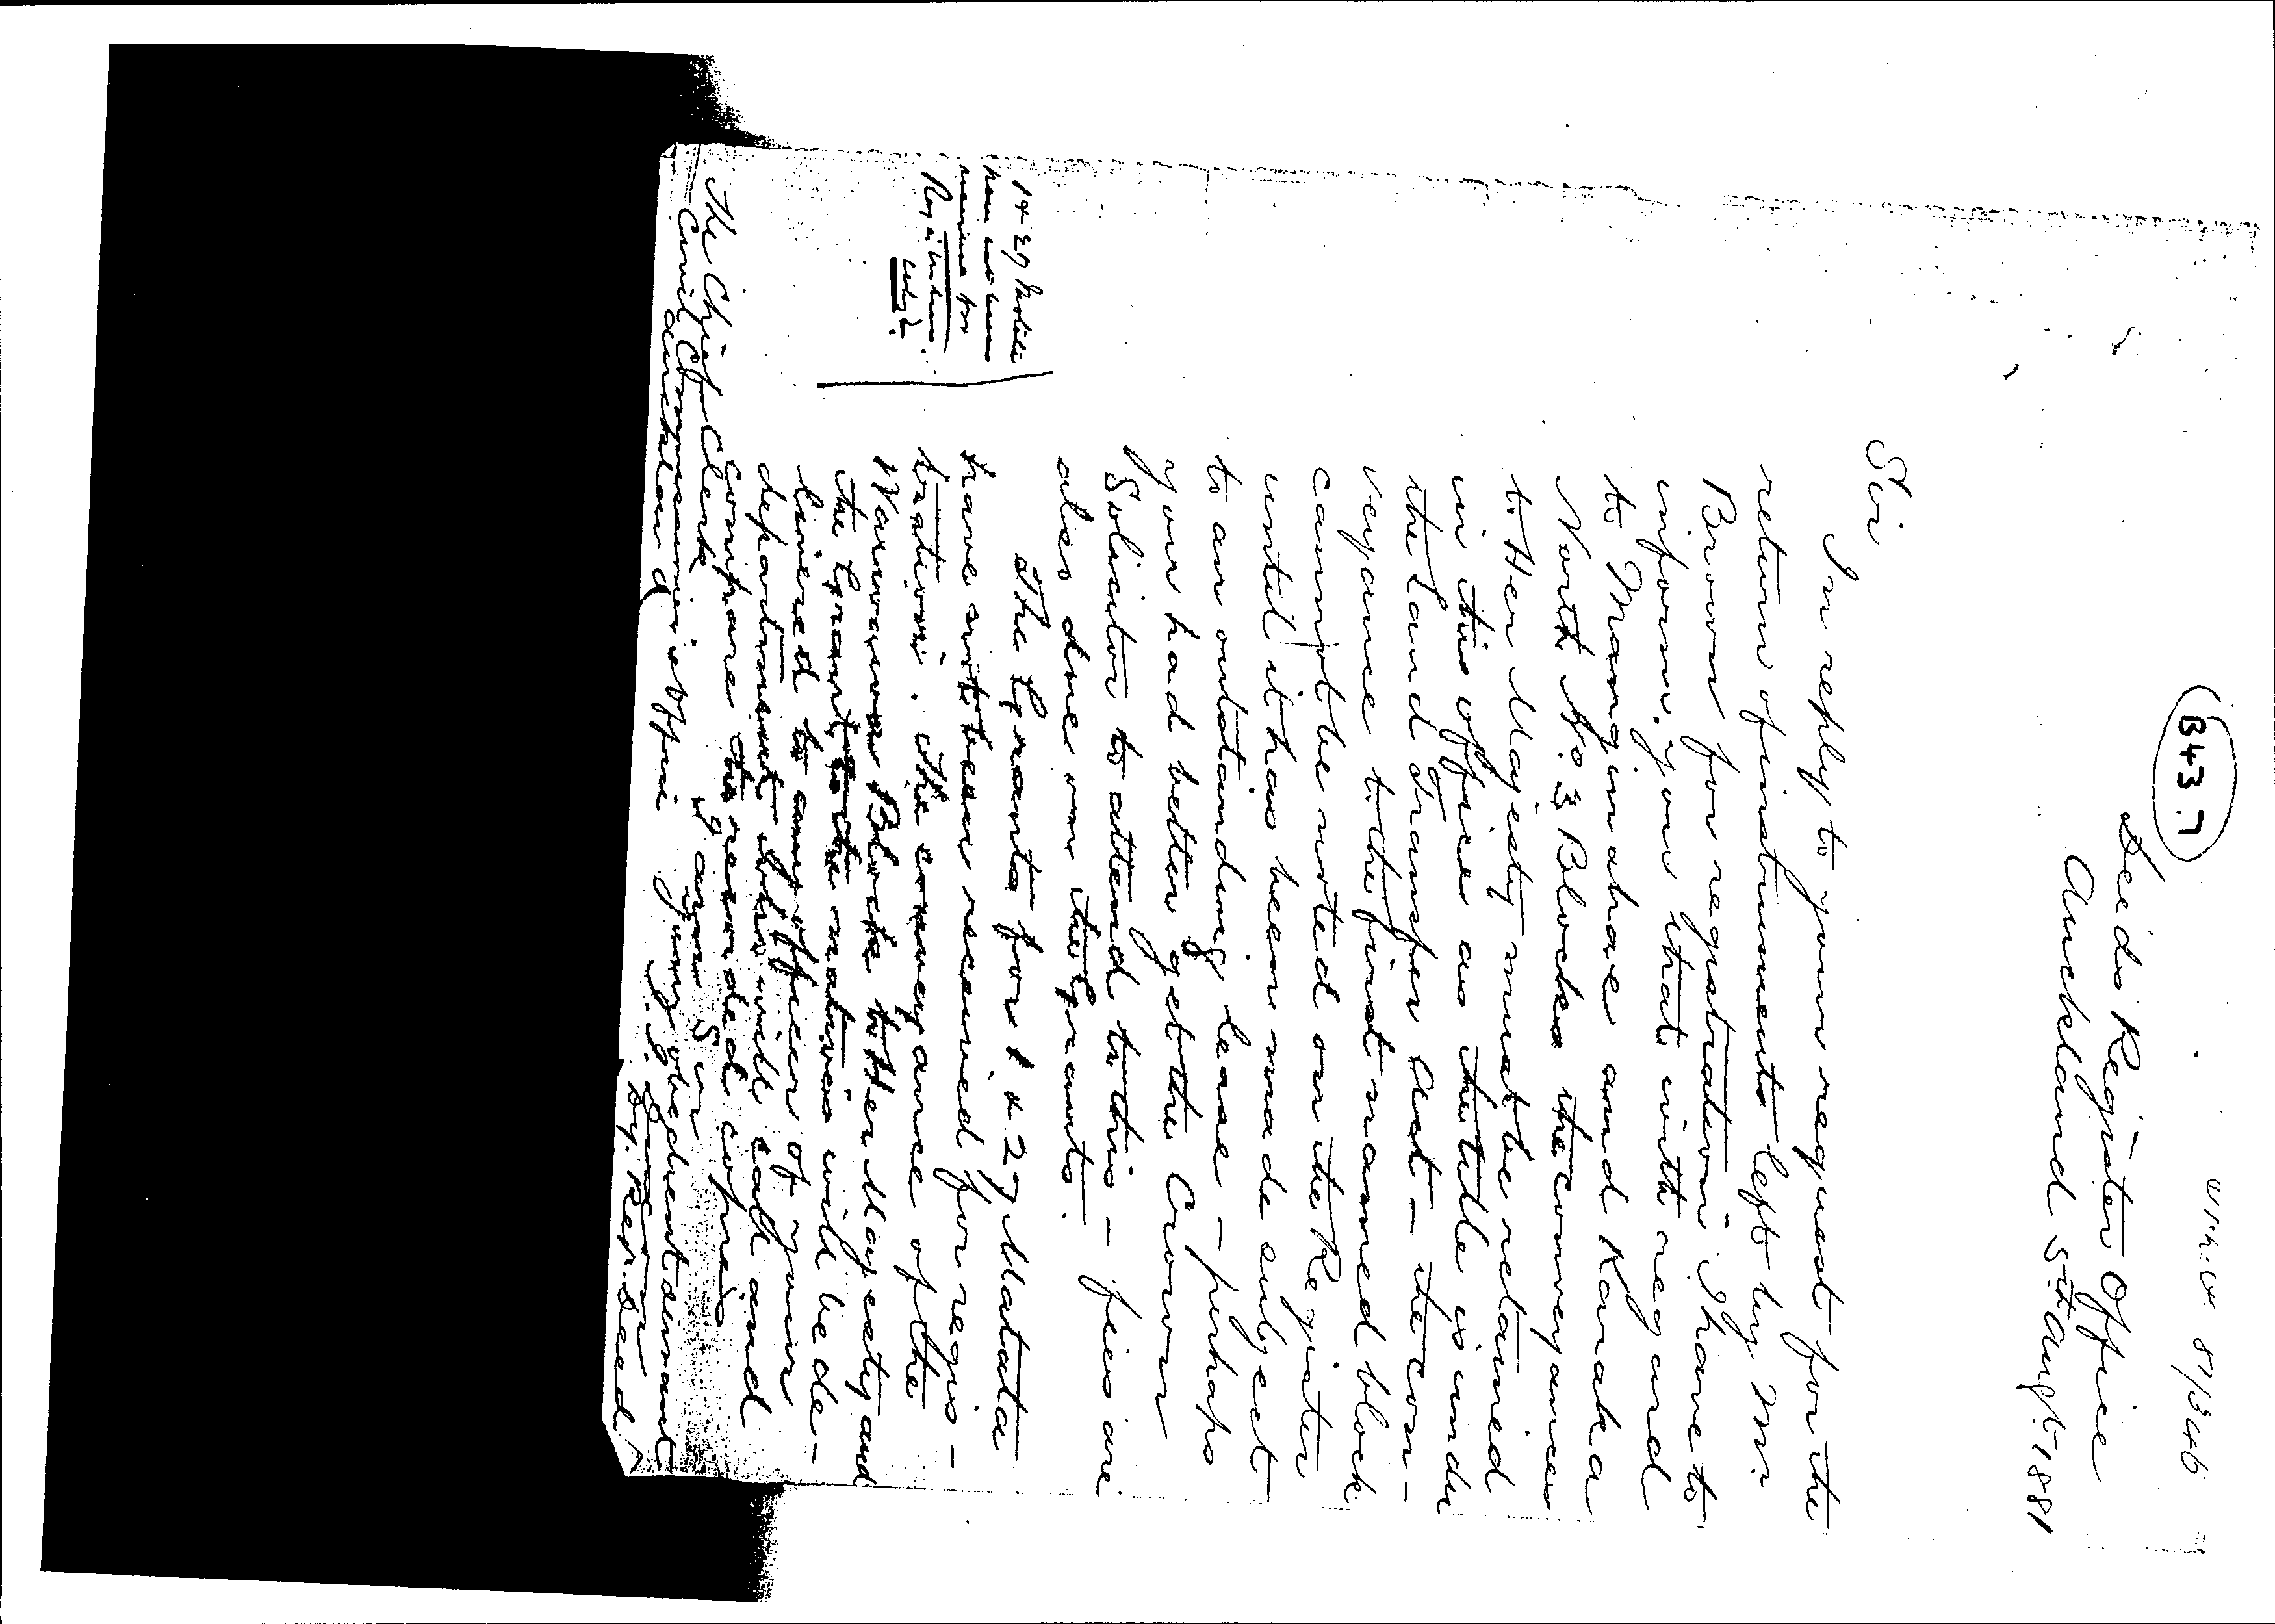 B43.7
81/3246
Deeds Register Office
Auckland 5th Augst. 1881
Sir
In reply to your request for the
return of instruments left by Mr.
Brown for registration I have to
inform you that with regard
to Mangimahae and Karaka
North No. 3 Blocks the conveyances
to Her Majesty must be retained
in this office as the title is under
the Land Transfer Act – the con-
veyance to the first named block
cannot be noted on the Register
until it has been made subject
to an outstanding lease – perhaps
you had better get the Crown
Solicitor to attend to this – fees are
also due on the Grants.
The Grants for 1 & 27 Matata
have not been received for regis-
tration. The conveyance of the
Block to Her Majesty and
the Grant to the natives will be de-
livered to any officer of your
department who will call and
compare the recorded copies
I am Sir
your obedient servant
Dy. Regr. Deeds
The Chief Clerk
Civil Commissioners Office
Auckland
1 & 27 Matata
have not been
received for